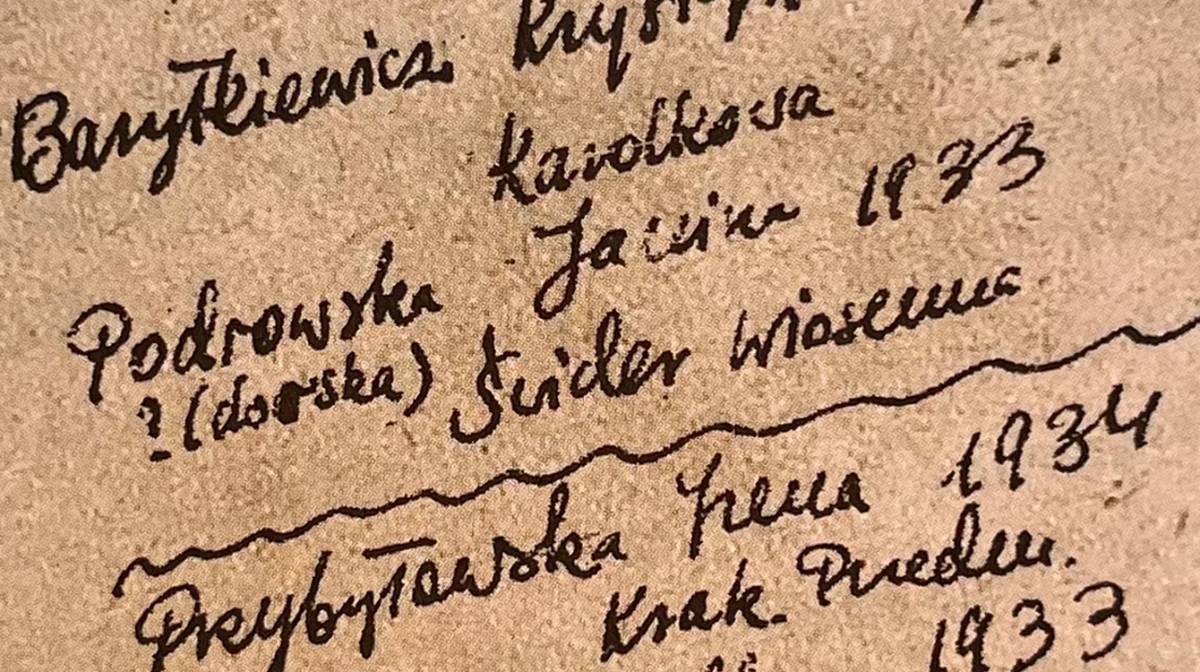 Barytkiewicz Kryst
Karolkowa
Podrowska Janina 1933
? (dowska) Świder Wiosenna
Przybyłowska Irena 1934
Krak. Przedm.
1933